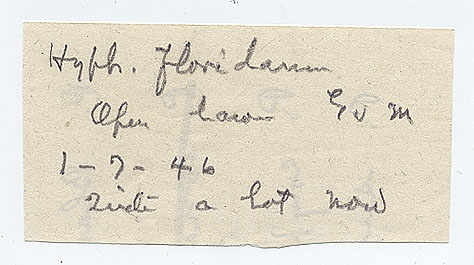 Hyph. floridanum
Open lawn G V M
1-7-46
Quite a lot now